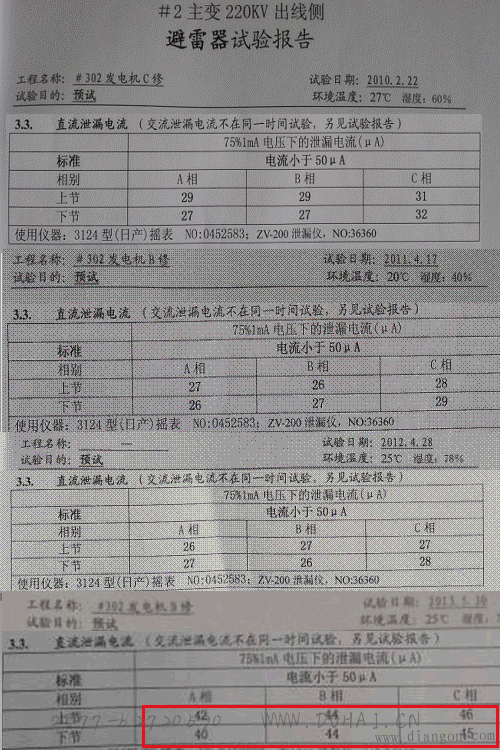 #2主变220KV出线侧
避雷器试验报告
工程名称：#302发电机C修 试验日期：2010.2.22
试验目的：预试 环境温度：27℃ 湿度：60%
3.3. 直流泄漏电流（交流泄漏电流不在同一时间试验，另见试验报告）
75%1mA电压下的泄漏电流(μA)
标准 电流小于50μA
相别 A相 B相 C相
上节 29 29 31
下节 27 27 32
使用仪器：3124型(日产)摇表 NO:0452583；ZV-200泄漏仪，NO:36360
工程名称：#302发电机B修 试验日期：2011.4.17
试验目的：预试 环境温度：20℃ 湿度：40%
3.3. 直流泄漏电流（交流泄漏电流不在同一时间试验，另见试验报告）
75%1mA电压下的泄漏电流(μA)
标准 电流小于50μA
相别 A相 B相 C相
上节 27 26 28
下节 26 27 29
使用仪器：3124型(日产)摇表 NO:0452583；ZV-200泄漏仪，NO:36360
工程名称： — 试验日期：2012.4.28
试验目的：预试 环境温度：25℃ 湿度：78%
3.3. 直流泄漏电流（交流泄漏电流不在同一时间试验，另见试验报告）
75%1mA电压下的泄漏电流(μA)
标准 电流小于50μA
相别 A相 B相 C相
上节 26 27 27
下节 27 26 28
使用仪器：3124型(日产)摇表 NO:0452583；ZV-200泄漏仪，NO:36360
工程名称：#302发电机B修 试验日期：2013.5.30
试验目的：预试 环境温度：25℃ 湿度：
3.3. 直流泄漏电流（交流泄漏电流不在同一时间试验，另见试验报告）
75%1mA电压下的泄漏电流(μA)
标准 电流小于50μA
相别 A相 B相 C相
上节 42 44 46
下节 40 44 45
diangon.com